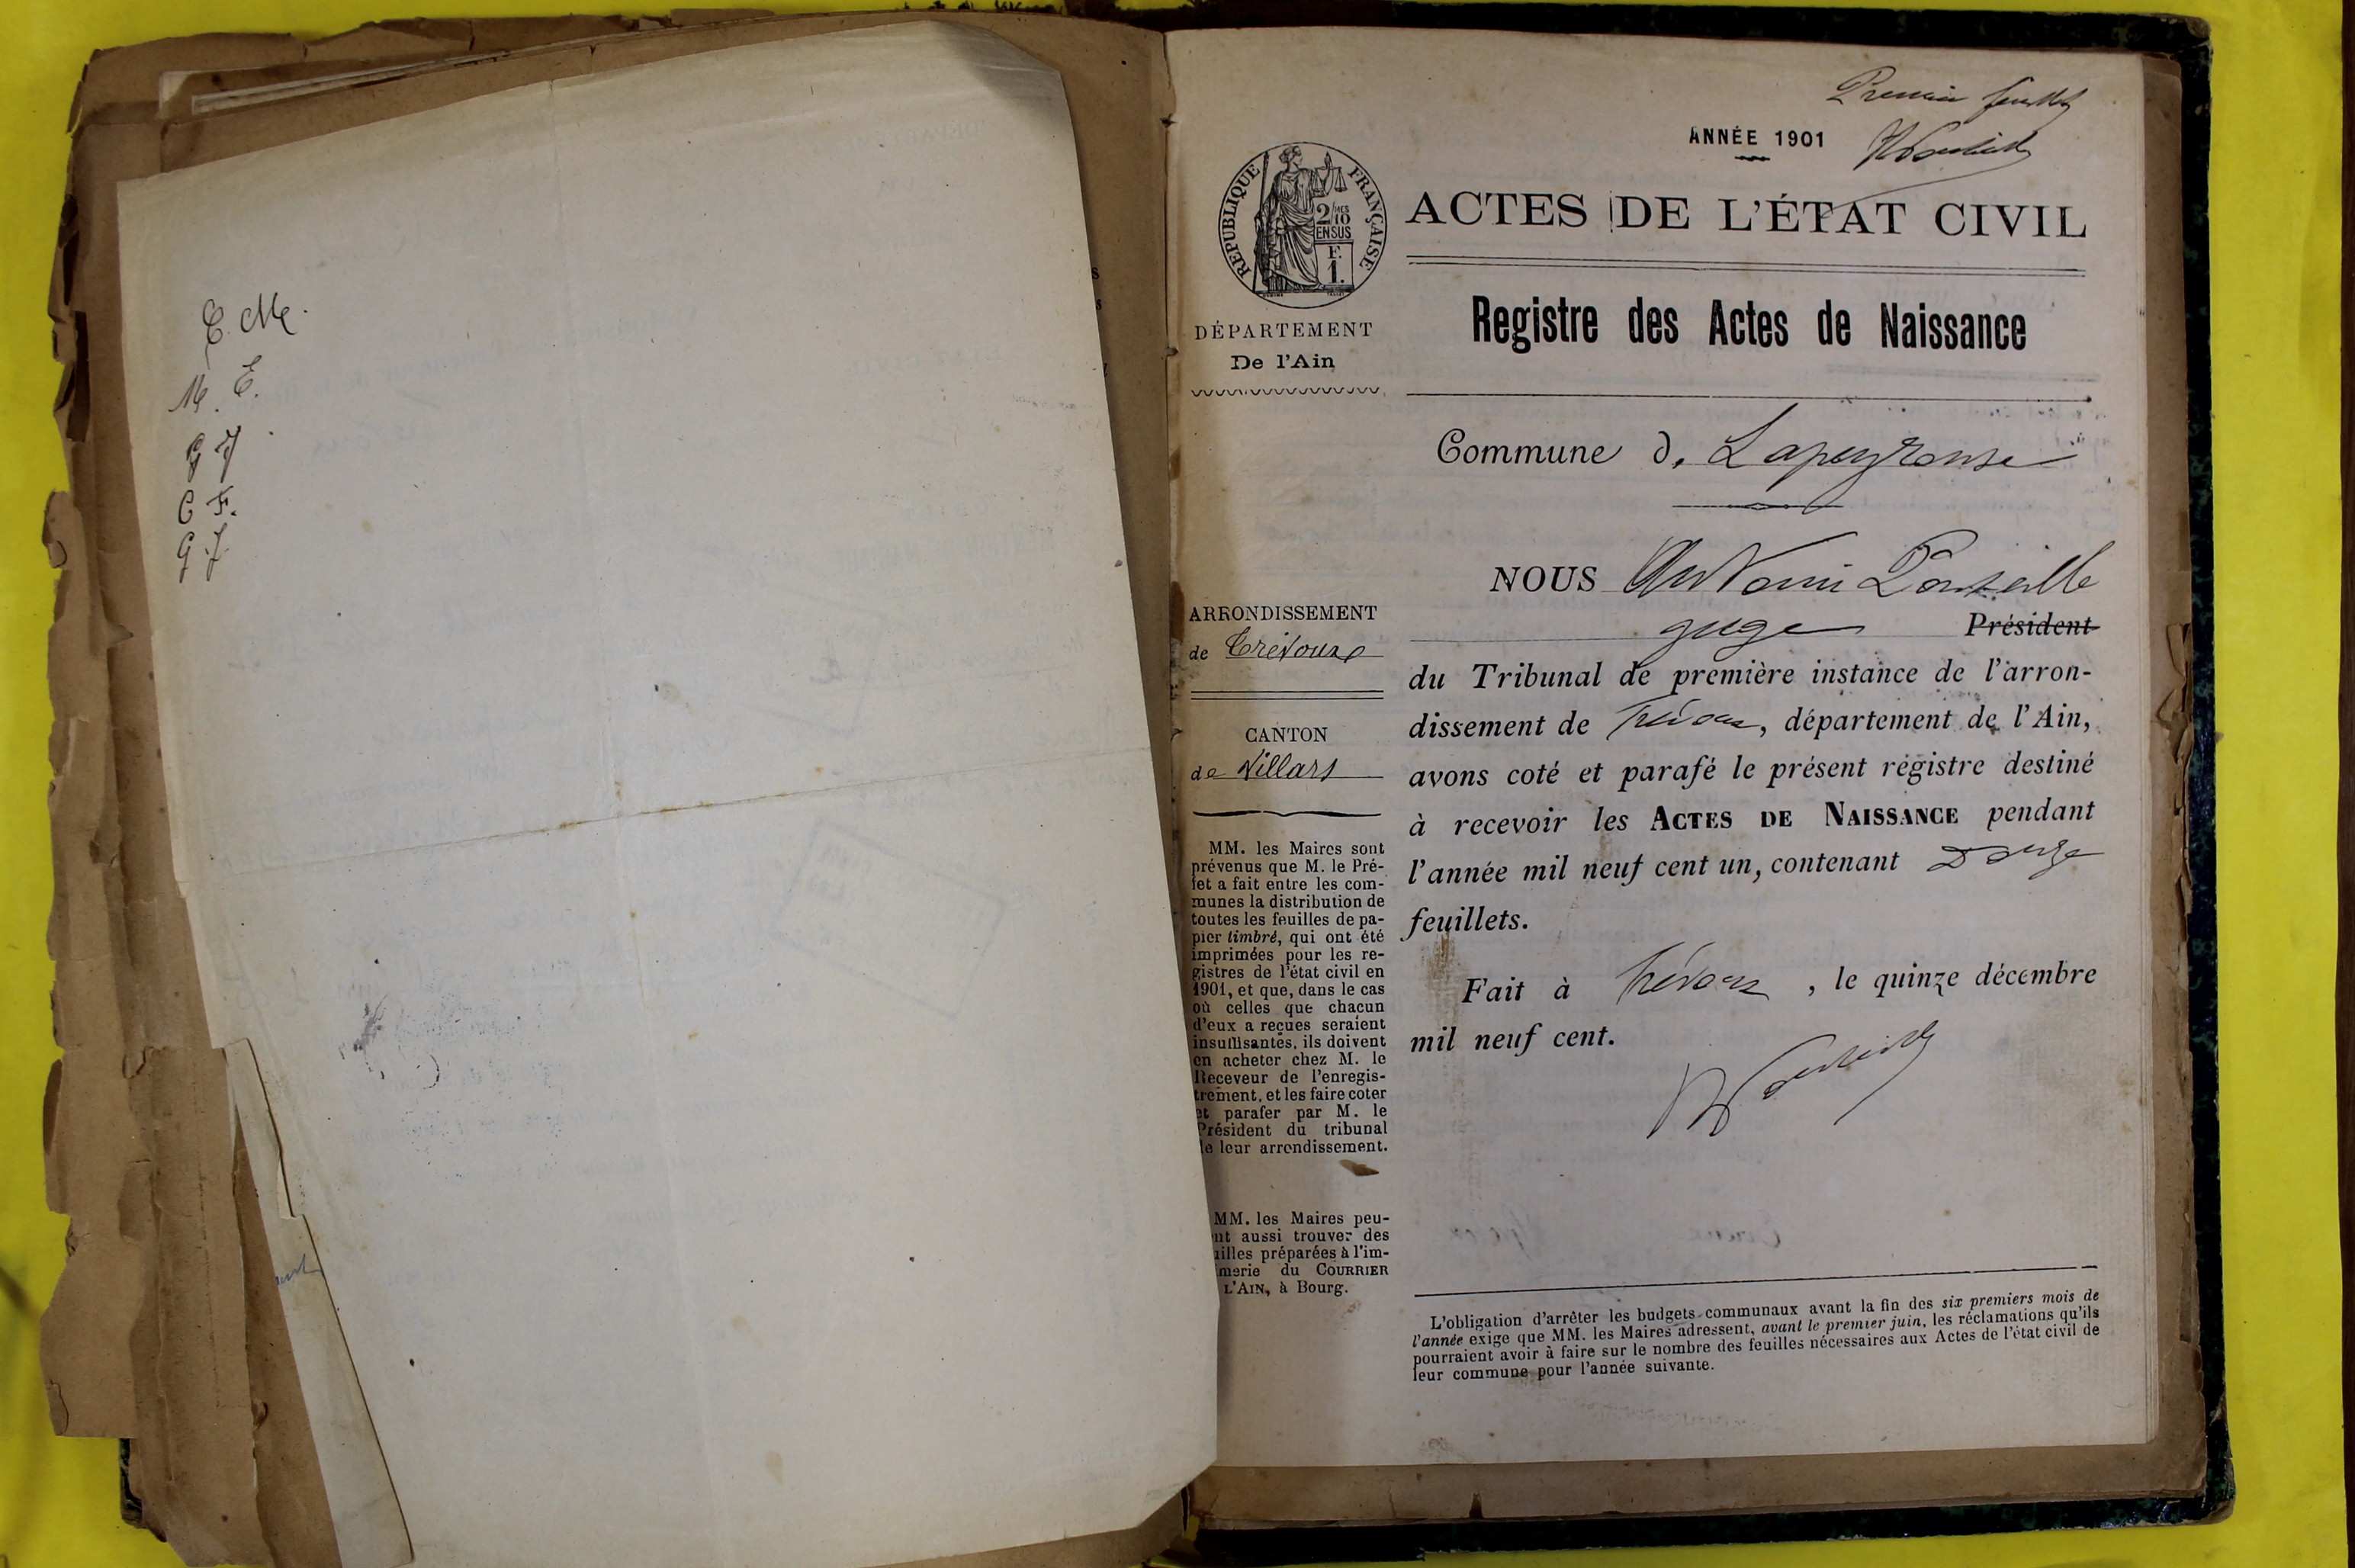 E. M.
M. E.
G J
C F.
G. J.
Premier feuillet
ANNÉE 1901
RÉPUBLIQUE FRANÇAISE
2/10 MES
EN SUS
F.
1.
ACTES DE L'ÉTAT CIVIL
Registre des Actes de Naissance
DÉPARTEMENT
De l'Ain
Commune d. Lapeyrouse
NOUS Antonin
juge Président
du Tribunal de première instance de l'arron-
dissement de Trévoux, département de l'Ain,
avons coté et parafé le présent régistre destiné
à recevoir les ACTES DE NAISSANCE pendant
l'année mil neuf cent un, contenant Douze
feuillets.
Fait à Trévoux, le quinze décembre
mil neuf cent.
ARRONDISSEMENT
de Trévoux
CANTON
de Villars
MM. les Maires sont
prévenus que M. le Pré-
fet a fait entre les com-
munes la distribution de
toutes les feuilles de pa-
pier timbré, qui ont été
imprimées pour les re-
gistres de l'état civil en
1901, et que, dans le cas
où celles que chacun
d'eux a reçues seraient
insuffisantes, ils doivent
en acheter chez M. le
Receveur de l'enregis-
trement, et les faire coter
et parafer par M. le
Président du tribunal
de leur arrondissement.
MM. les Maires peu-
nt aussi trouver des
uilles préparées à l'im-
merie du COURRIER
L'AIN, à Bourg.
L'obligation d'arrêter les budgets communaux avant la fin des six premiers mois de
l'année exige que MM. les Maires adressent, avant le premier juin, les réclamations qu'ils
pourraient avoir à faire sur le nombre des feuilles nécessaires aux Actes de l'état civil de
leur commune pour l'année suivante.